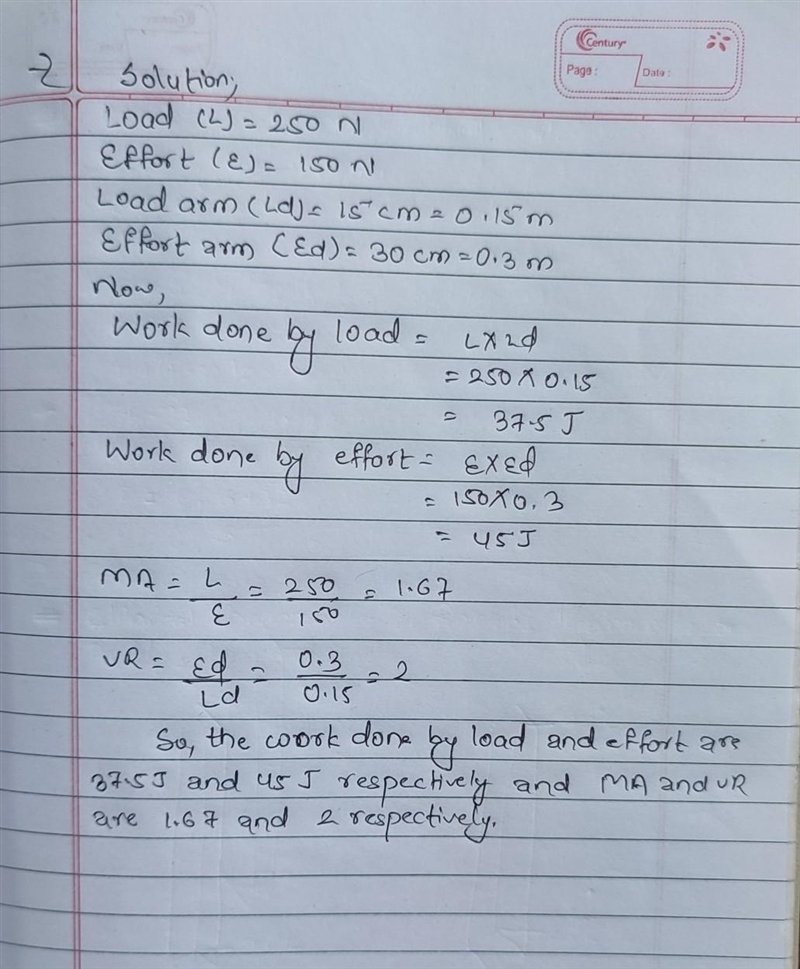 Century
Page :
Date :
2 Solution;
Load (L) = 250 N
Effort (E) = 150 N
Load arm (Ld) = 15 cm = 0.15 m
Effort arm (Ed) = 30 cm = 0.3 m
Now,
Work done by load = L X Ld
= 250 X 0.15
= 37.5 J
Work done by effort = E X Ed
= 150 X 0.3
= 45 J
MA = L/E = 250/150 = 1.67
VR = Ed/Ld = 0.3/0.15 = 2
So, the work done by load and effort are
37.5 J and 45 J respectively and MA and VR
are 1.67 and 2 respectively.